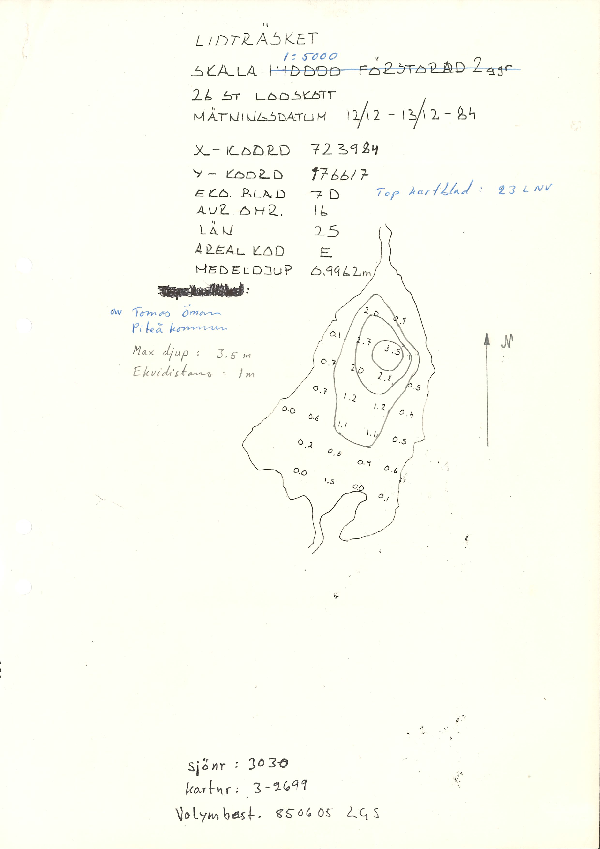 LIDTRÄSKET
1:5000
SKALA 1:10000 FÖRSTORAD 2 ggr
26 ST LODSKOTT
MÄTNINGSDATUM 12/12 - 13/12 - 84
X-KOORD 723984
Y-KOORD 176617
EKO. BLAD 7D
Top kartblad: 23 L NV
AVR. OMR. 16
LÄN 25
AREAL KOD E
MEDELDJUP 0.9962m
av Tomas Öman
Piteå kommun
Max djup: 3.5 m
Ekvidistans: 1m
N
2.0 0.5
0.1 2.7 3.5
0.7 2.0 2.2 0.5
0.7 1.2 1.2 0.4
0.0 0.6 1.1 1.1 0.5
0.2 0.6 0.4 0.6
0.0 1.5 0.0 0.1
sjönr: 3030
kartnr: 3-2699
Volymbest. 850605 LGS